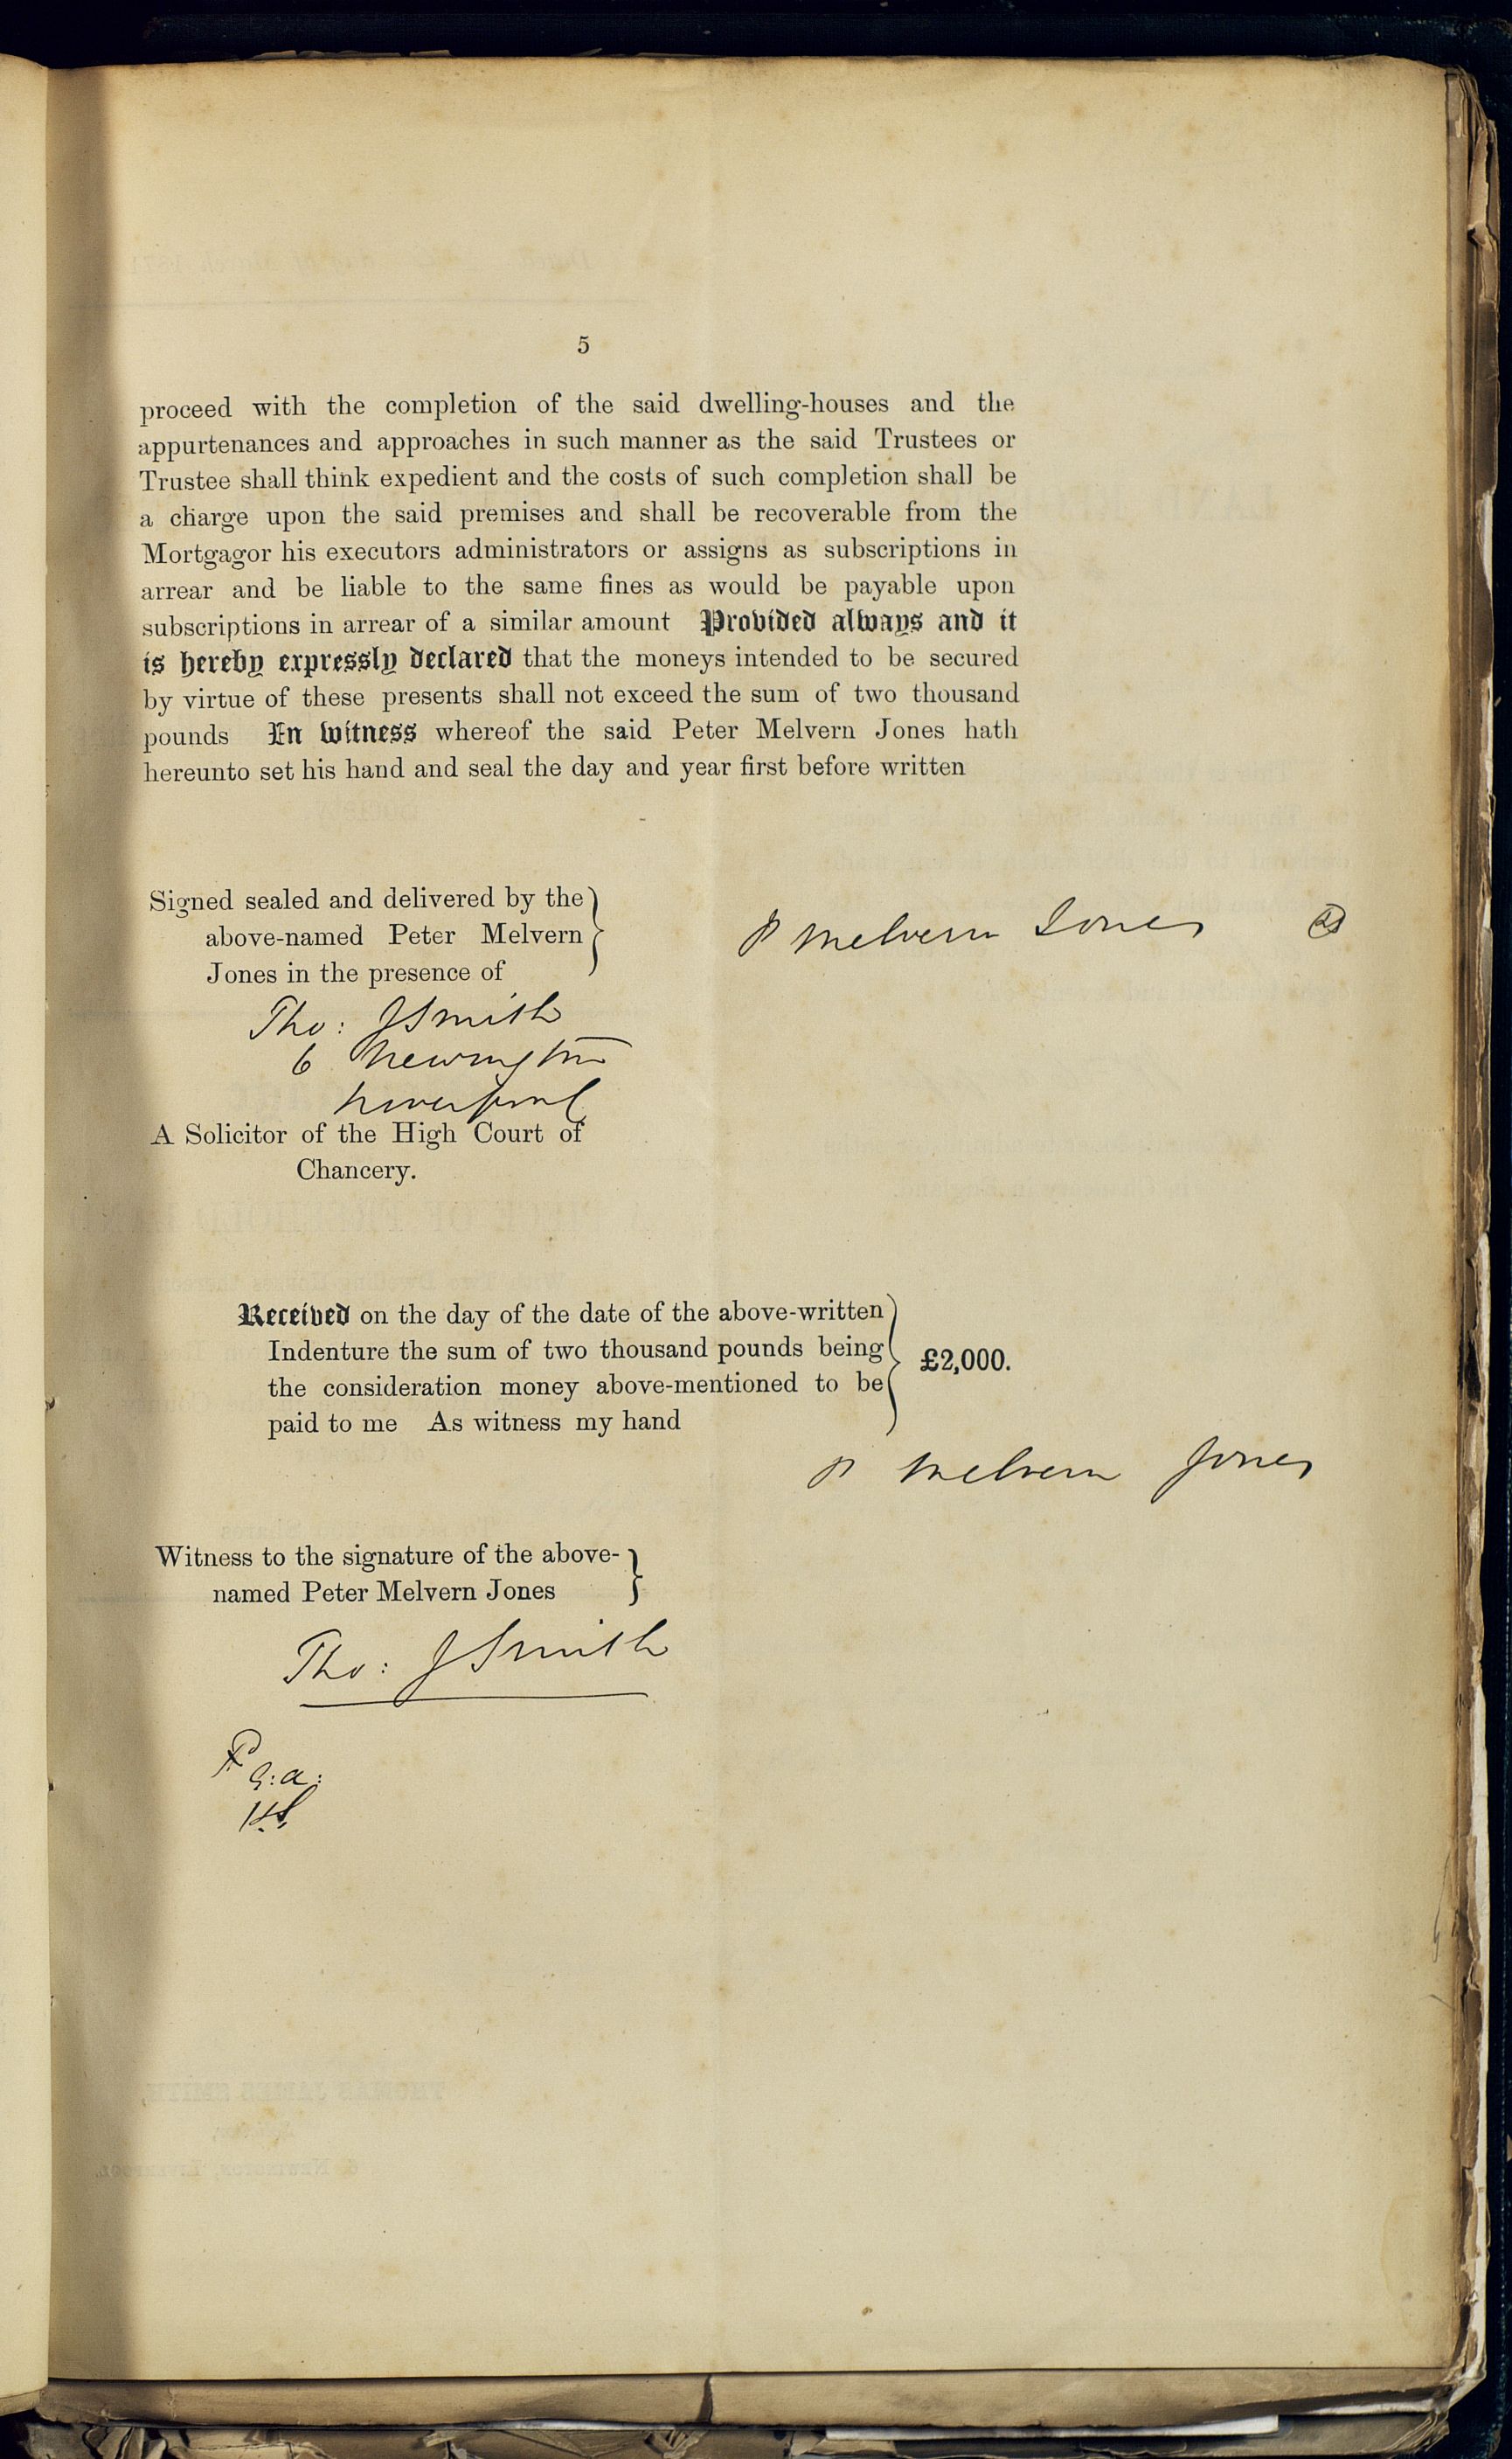 5
proceed with the completion of the said dwelling-houses and the
appurtenances and approaches in such manner as the said Trustees or
Trustee shall think expedient and the costs of such completion shall be
a charge upon the said premises and shall be recoverable from the
Mortgagor his executors administrators or assigns as subscriptions in
arrear and be liable to the same fines as would be payable upon
subscriptions in arrear of a similar amount Provided always and it
is hereby expressly declared that the moneys intended to be secured
by virtue of these presents shall not exceed the sum of two thousand
pounds In witness whereof the said Peter Melvern Jones hath
hereunto set his hand and seal the day and year first before written
Signed sealed and delivered by the
above-named Peter Melvern
Jones in the presence of
P Melvern Jones
Tho: J Smith
6 Newington
Liverpool
A Solicitor of the High Court of
Chancery.
Received on the day of the date of the above-written
Indenture the sum of two thousand pounds being
the consideration money above-mentioned to be
paid to me As witness my hand
£2,000.
P Melvern Jones
Witness to the signature of the above-
named Peter Melvern Jones
Tho: J Smith